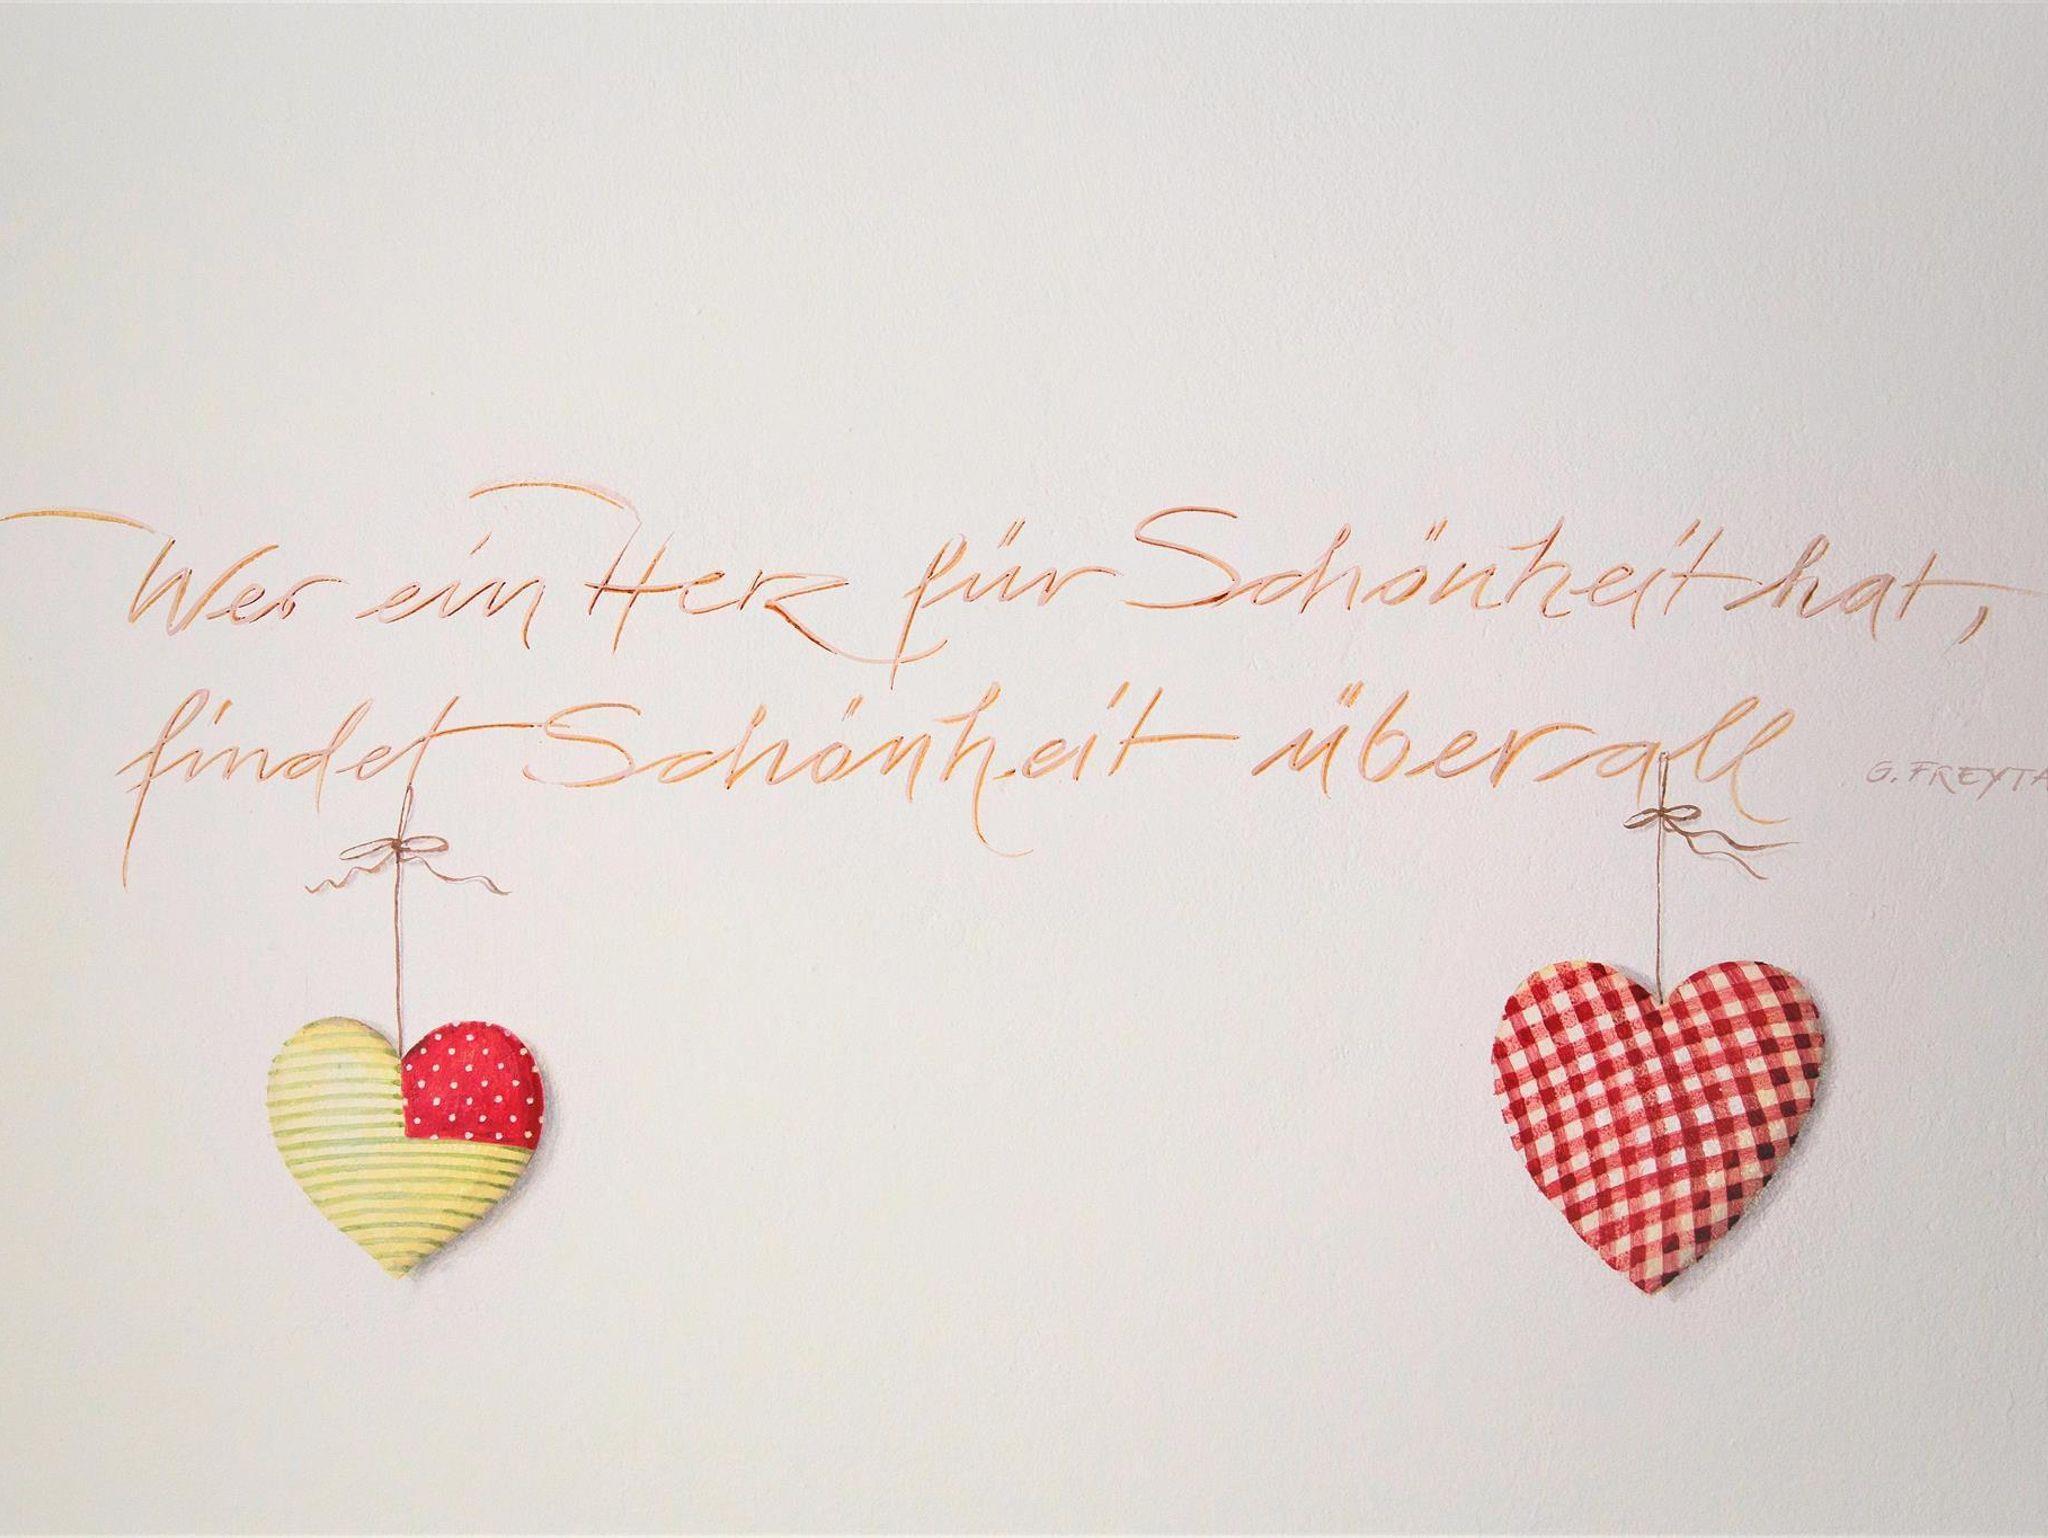 Wer ein Herz für Schönheit hat,
findet Schönheit überall
G. FREYTA